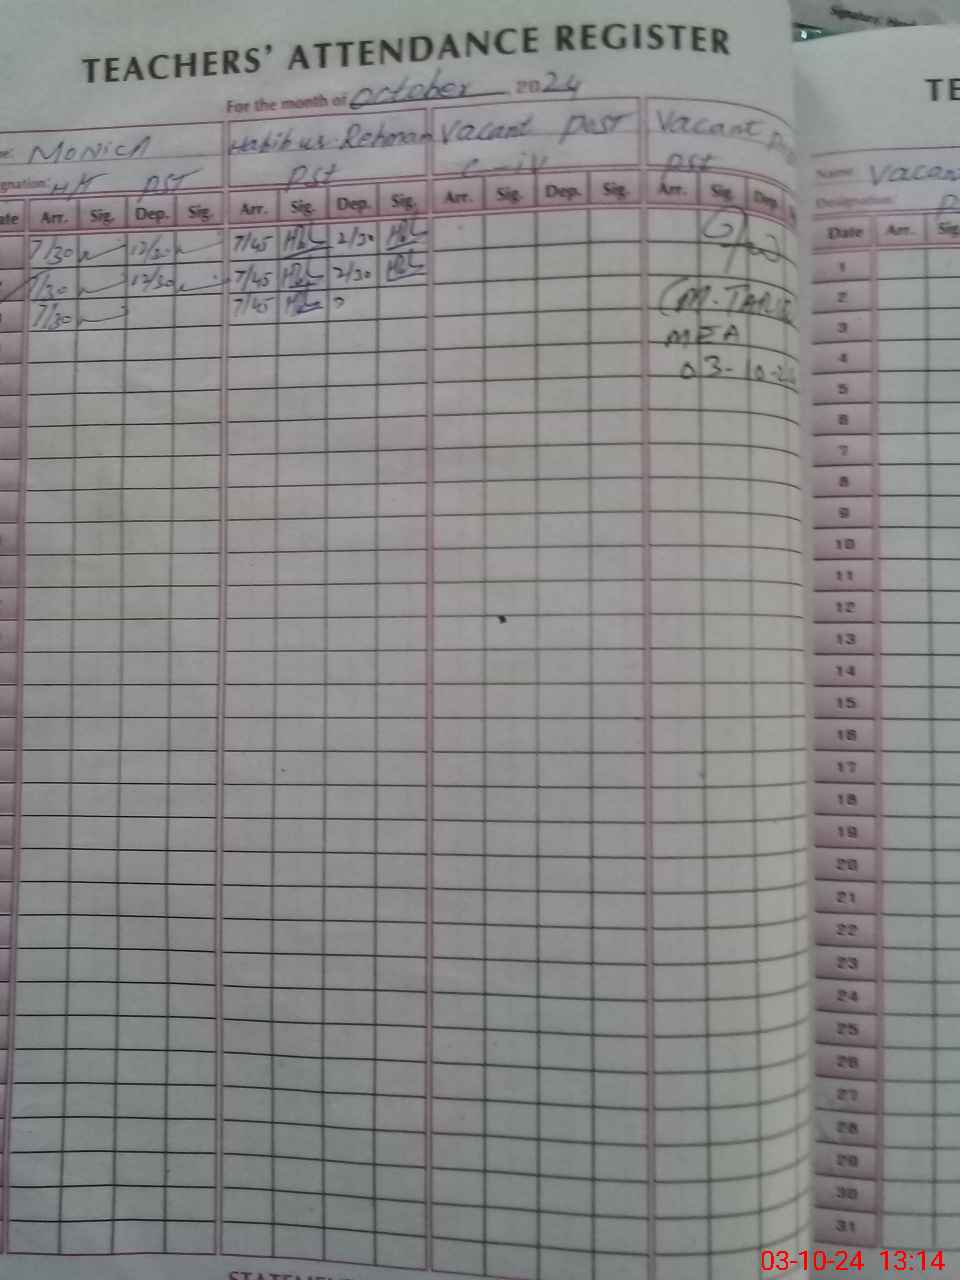 Signature: Head
TEACHERS' ATTENDANCE REGISTER
TE
For the month of October 2024
MONICA Habib us. Rehman Vacant Post Vacant
Name: Vacan
gnation: HM PST PST C-iV PST
Designation: P
ate Arr. Sig. Dep. Sig. Arr. Sig. Dep. Sig. Arr. Sig. Dep. Sig. Arr. Sig. Dep.
Date Arr. Sig
7/30 12/30 7/45 2/30
7/30 12/30 7/45 2/30
7/30 7/45
(M. TARI
MEA
03-10-24
1
2
3
4
5
6
7
8
9
10
11
12
13
14
15
16
17
18
19
20
21
22
23
24
25
26
27
28
29
30
31
STATEMEN
03-10-24 13:14